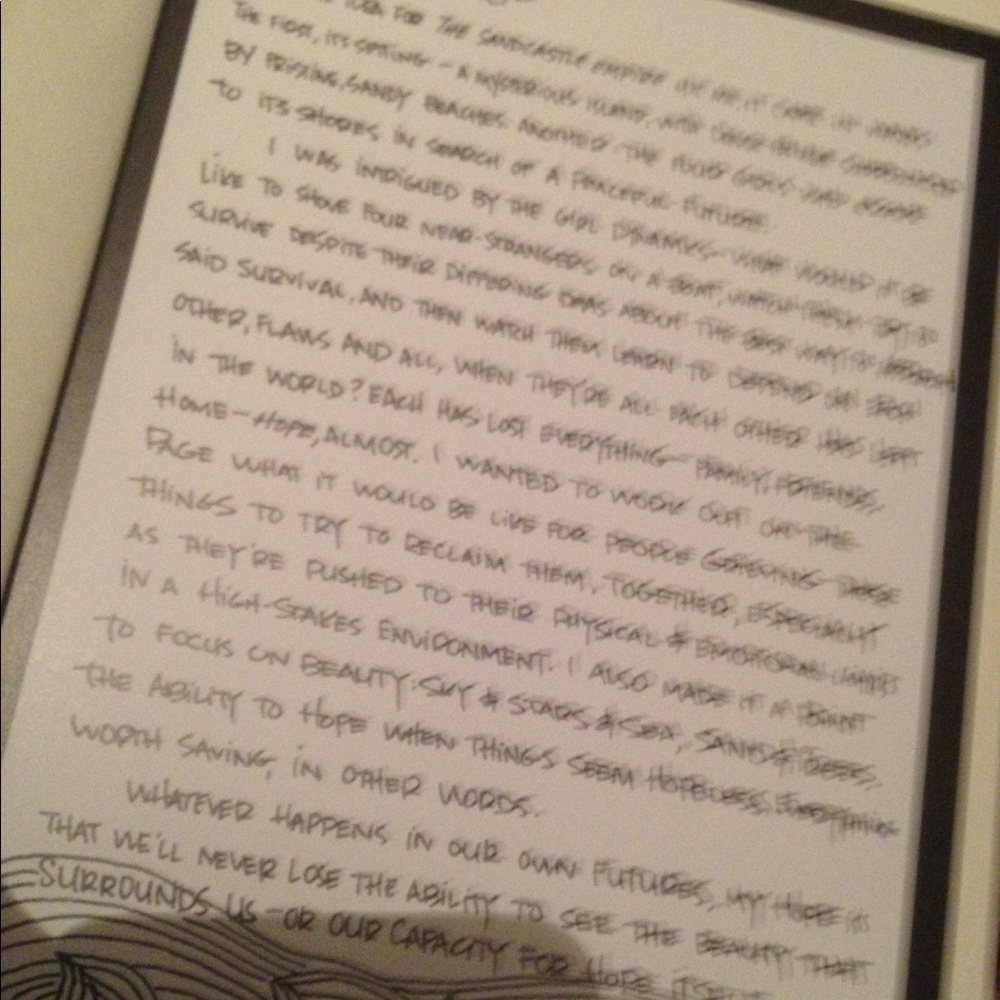 IDEA FOR THE SANDCASTLE EMPIRE HIT ME, IT CAME IN
THE FIRST, ITS SETTING – A MYSTERIOUS ISLAND, WITH SURROUNDED
BY PRISTINE, SANDY BEACHES. ANOTHER: THE GIRLS WHO
TO ITS SHORES IN SEARCH OF A PEACEFUL FUTURE.
I WAS INTRIGUED BY THE GIRL DYNAMICS – WHAT WOULD IT BE
LIKE TO SHOVE FOUR NEAR-STRANGERS ON A BOAT, WATCH THEM TRY TO
SURVIVE DESPITE THEIR DIFFERING IDEAS ABOUT THE BEST WAY TO
SAID SURVIVAL, AND THEN WATCH THEM LEARN TO DEPEND ON EACH
OTHER, FLAWS AND ALL, WHEN THEY'RE ALL EACH OTHER HAS LEFT
IN THE WORLD? EACH HAS LOST EVERYTHING – FAMILY, FRIENDS,
HOME – HOPE, ALMOST. I WANTED TO WORK OUT ON THE
PAGE WHAT IT WOULD BE LIKE FOR PEOPLE GRIEVING THESE
THINGS TO TRY TO RECLAIM THEM, TOGETHER, ESPECIALLY
AS THEY'RE PUSHED TO THEIR PHYSICAL & EMOTIONAL LIMITS
IN A HIGH-STAKES ENVIRONMENT. I ALSO MADE IT A POINT
TO FOCUS ON BEAUTY: SKY & STARS & SEA, SAND & TREES,
THE ABILITY TO HOPE WHEN THINGS SEEM HOPELESS. EVERYTHING
WORTH SAVING, IN OTHER WORDS.
WHATEVER HAPPENS IN OUR OWN FUTURES, MY HOPE IS
THAT WE'LL NEVER LOSE THE ABILITY TO SEE THE BEAUTY THAT
SURROUNDS US – OR OUR CAPACITY FOR HOPE ITSELF.